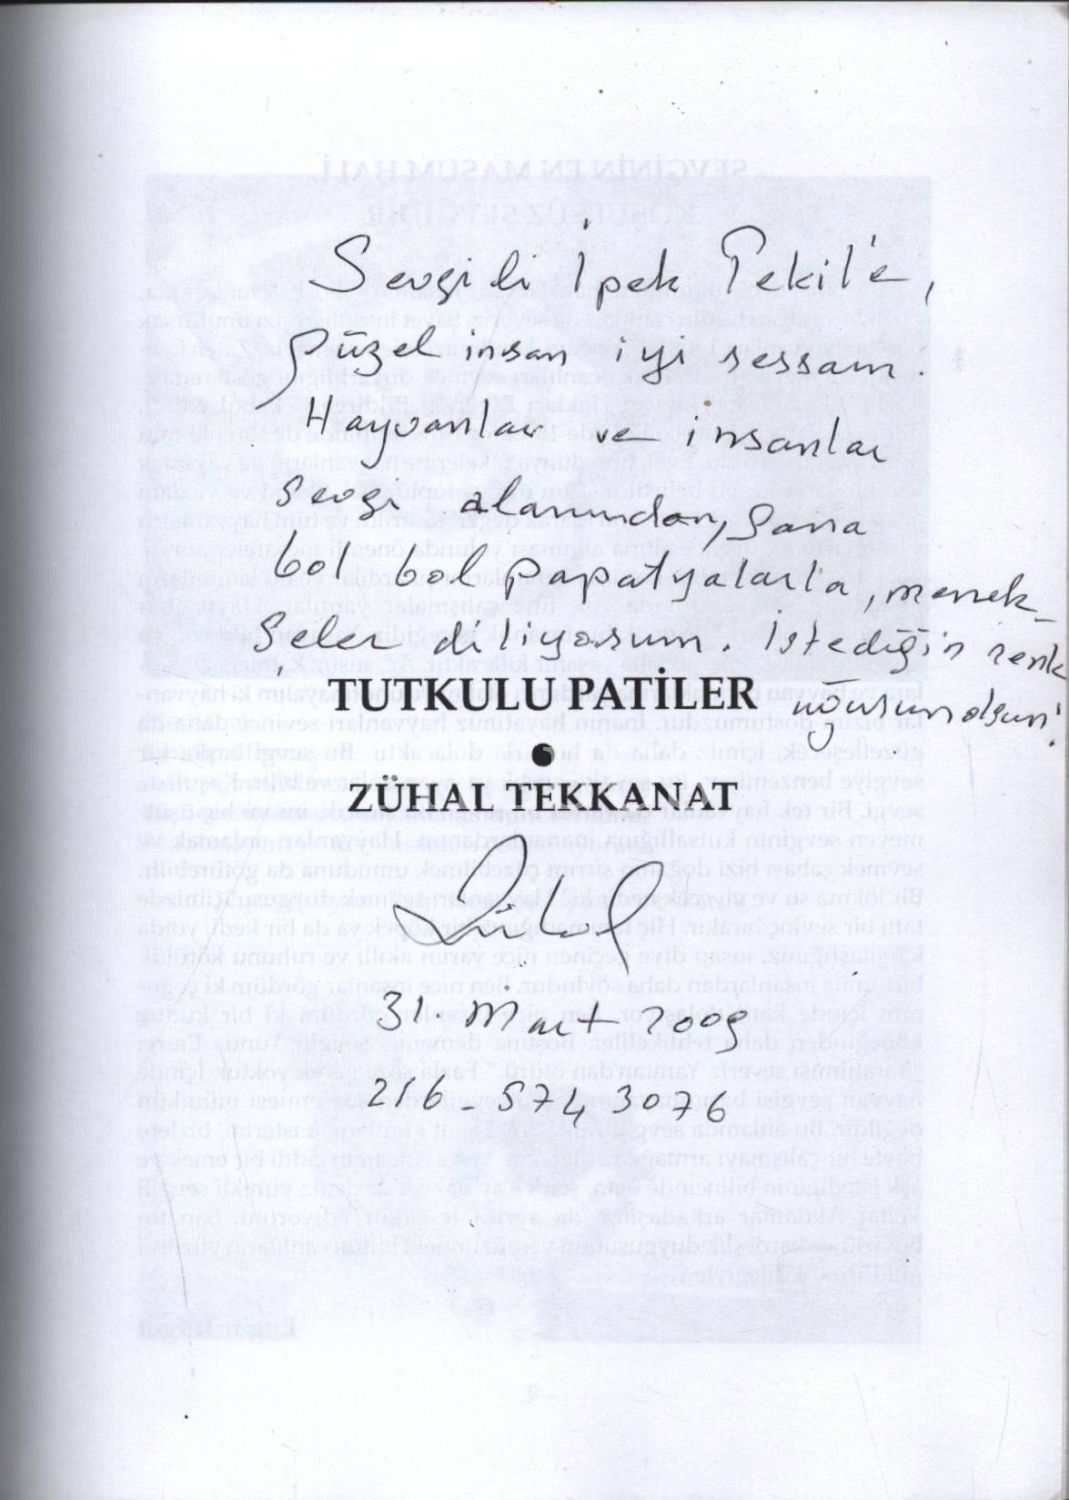 Sevgili İpek Tekil'e,
güzel insan iyi ressam.
Hayvanlar ve insanlar
sevgi alanından, sana
bol bol papatyalarla, menek
şeler diliyorum. İstediğin renk
uğurun olsun!
TUTKULU PATİLER
ZÜHAL TEKKANAT
Zühal
31 Mart 2009
216-5743076